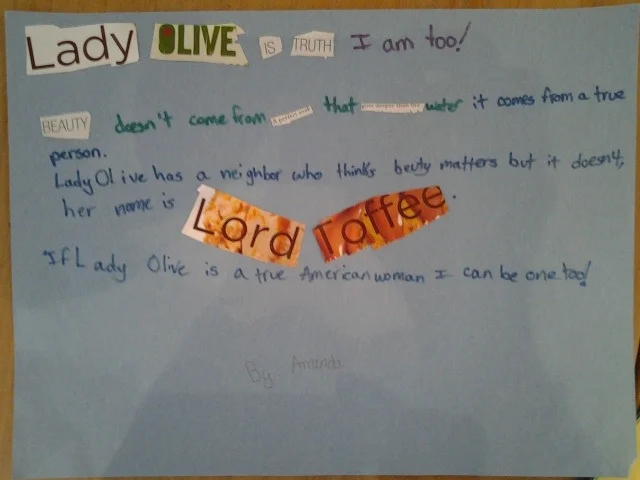 Lady OLIVE IS TRUTH I am too!
BEAUTY doesn't come from A perfect that water it comes from a true
person.
Lady Olive has a neighbor who thinks beuty matters but it doesn't,
her name is Lord Toffee.
"If Lady Olive is a true American woman I can be one too!
By: Amanda